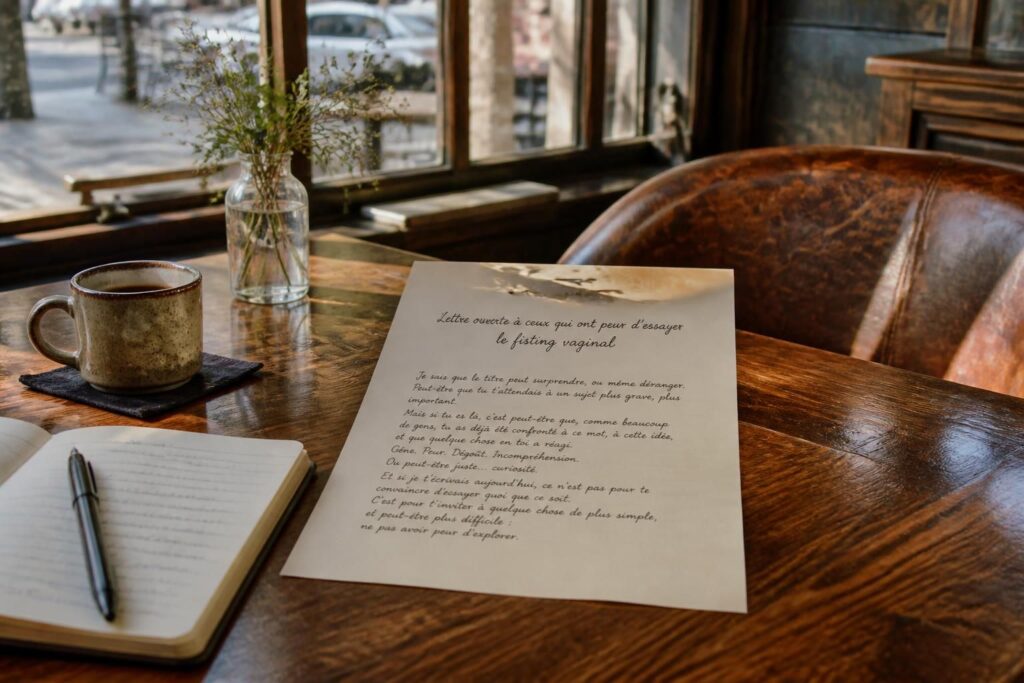 Lettre ouverte à ceux qui ont peur d'essayer
le fisting vaginal
Je sais que le titre peut surprendre, ou même déranger.
Peut-être que tu t'attendais à un sujet plus grave, plus
important.
Mais si tu es là, c'est peut-être que, comme beaucoup
de gens, tu as déjà été confronté à ce mot, à cette idée,
et que quelque chose en toi a réagi.
Gêne. Peur. Dégoût. Incompréhension.
Ou peut-être juste... curiosité.
Et si je t'écrivais aujourd'hui, ce n'est pas pour te
convaincre d'essayer quoi que ce soit.
C'est pour t'inviter à quelque chose de plus simple,
et peut-être plus difficile :
ne pas avoir peur d'explorer.